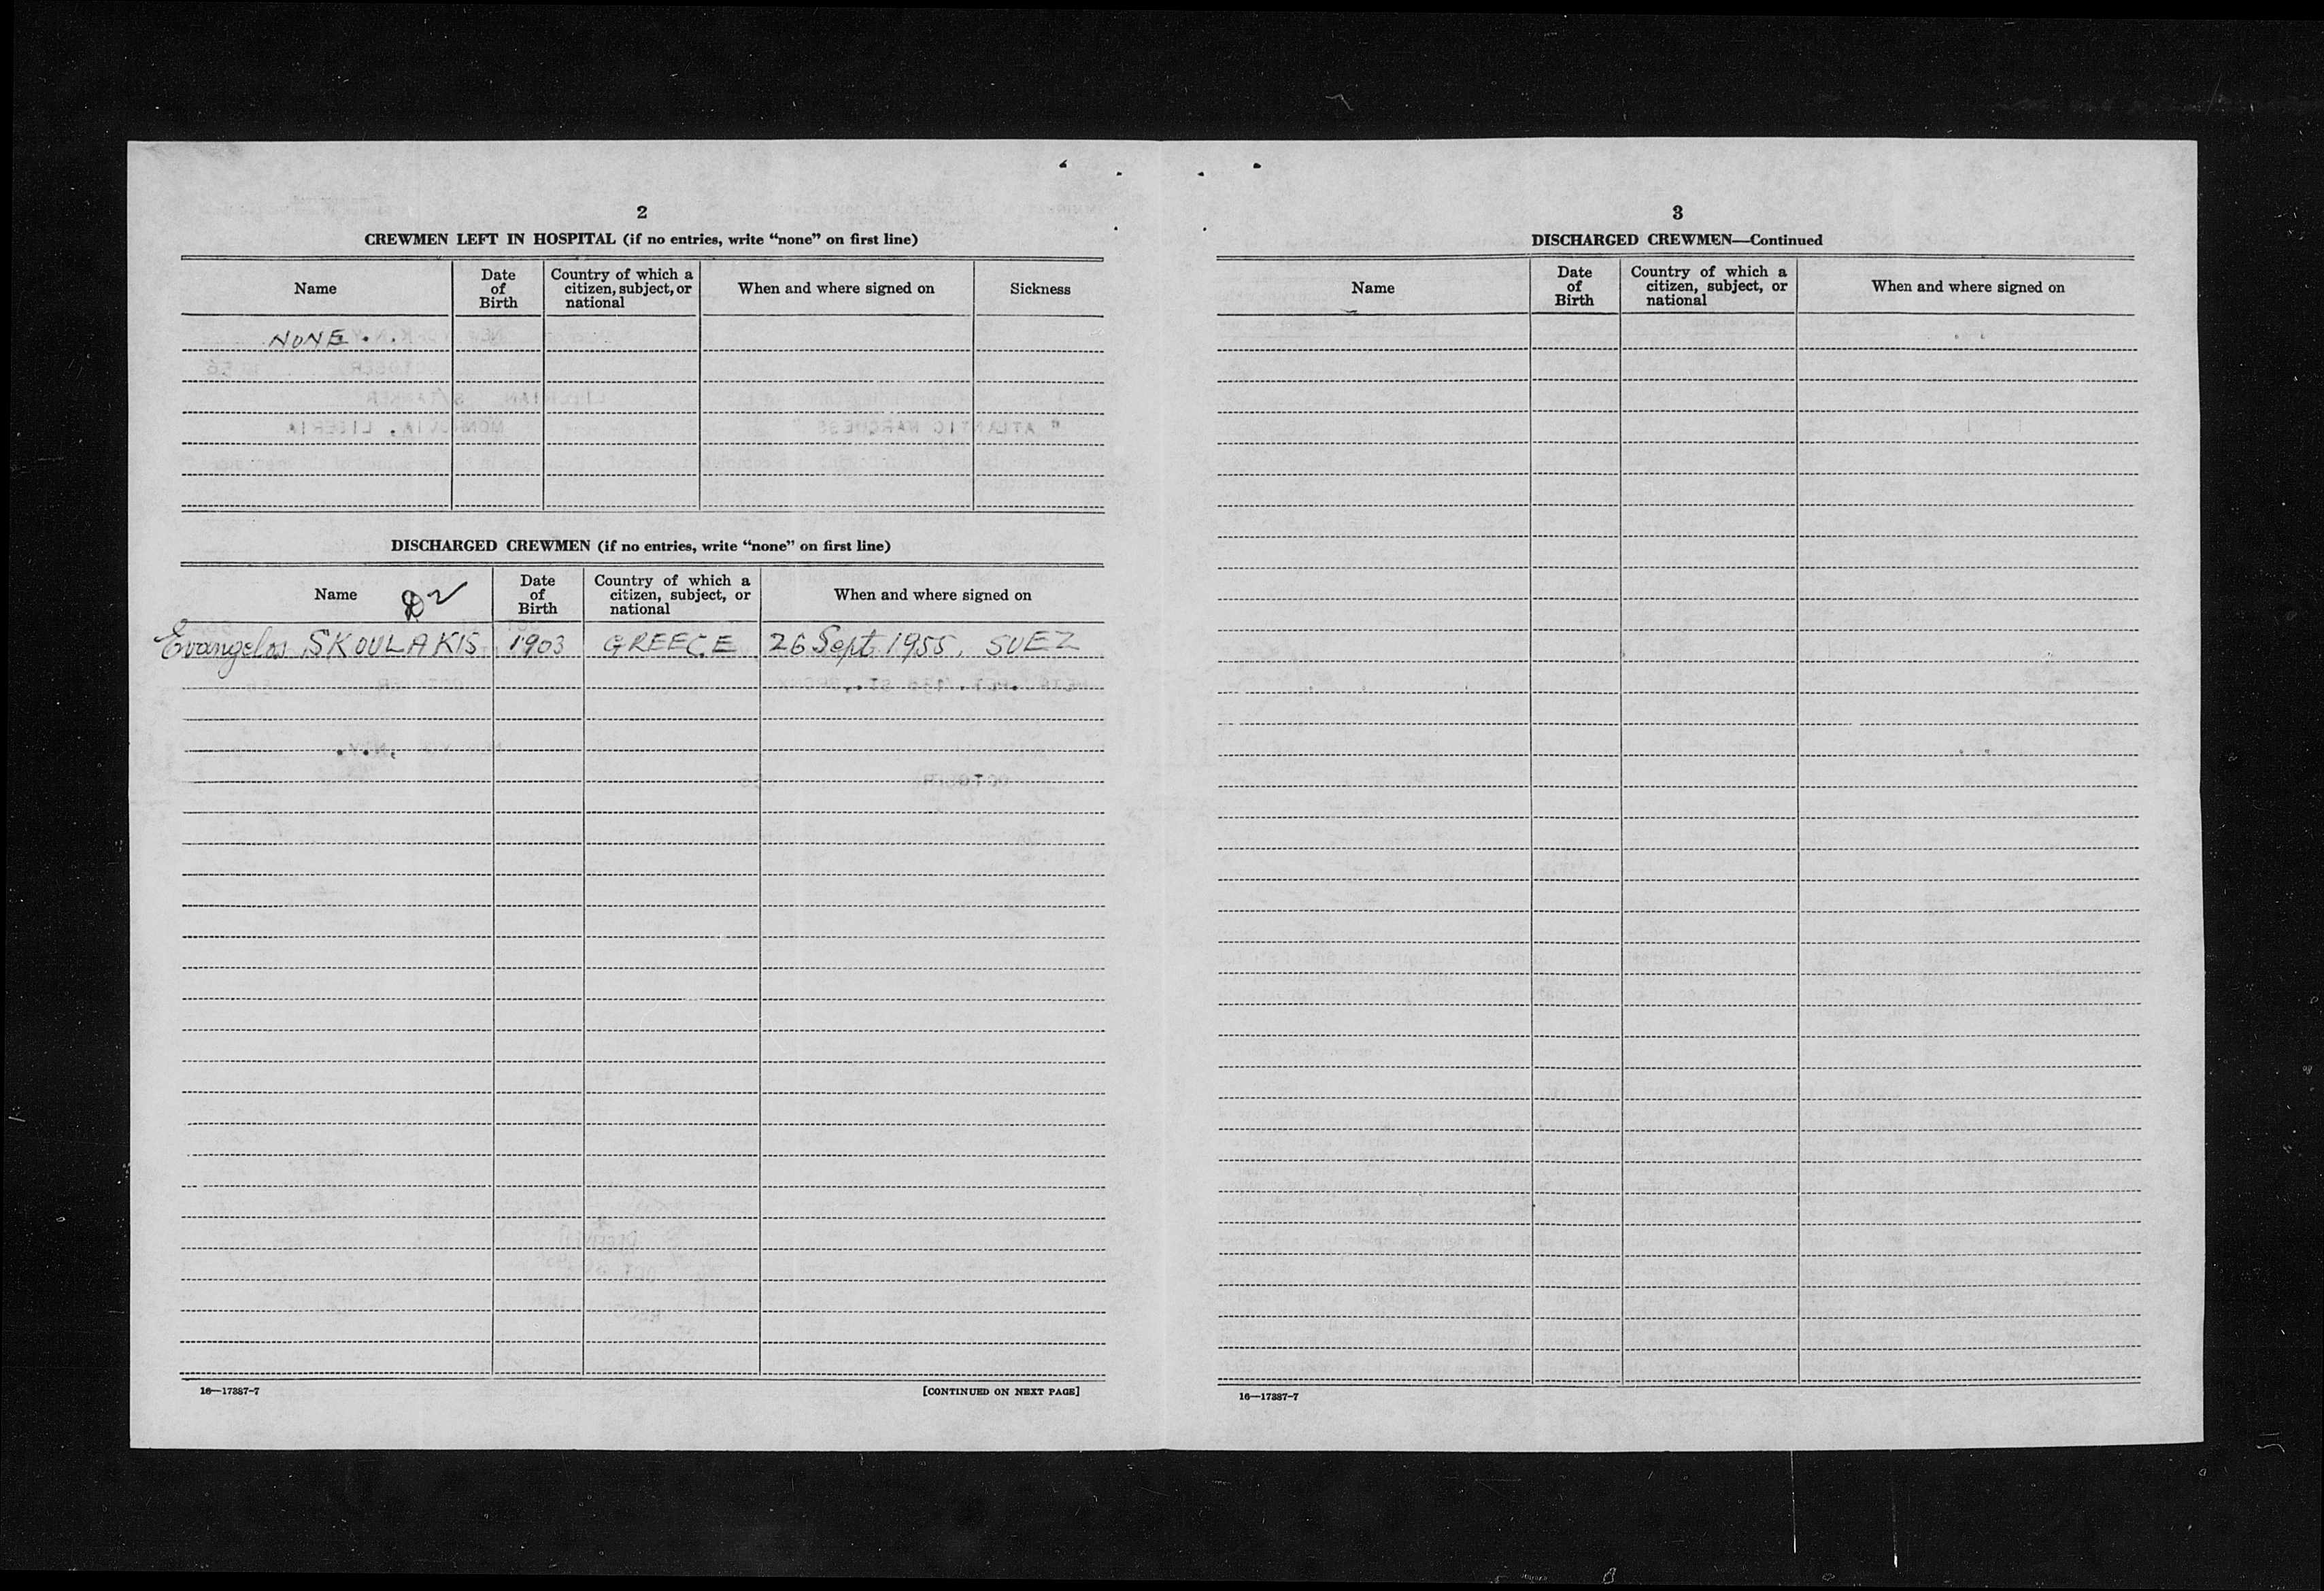 2
CREWMEN LEFT IN HOSPITAL (if no entries, write “none” on first line)
Name Date of Birth Country of which a citizen, subject, or national When and where signed on Sickness
NONE..
DISCHARGED CREWMEN (if no entries, write “none” on first line)
Name Date of Birth Country of which a citizen, subject, or national When and where signed on
Evangelos SKOULAKIS 1903 GREECE 26 Sept. 1955, SUEZ
16—17387-7 [CONTINUED ON NEXT PAGE]
3
DISCHARGED CREWMEN—Continued
Name Date of Birth Country of which a citizen, subject, or national When and where signed on
16—17387-7